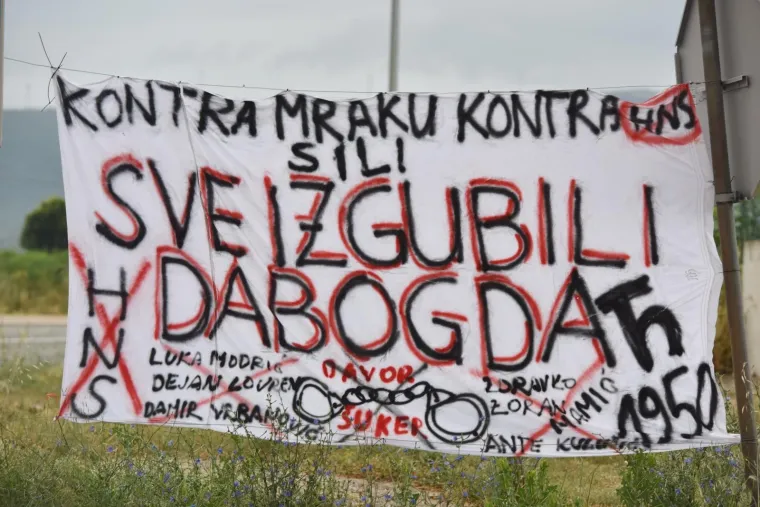 KONTRA MRAKU KONTRA HNS
SILI
SVE IZGUBILI
DABOGDA
HNS
LUKA MODRIĆ
DEJAN LOVREN
DAMIR VRBANOVIĆ
DAVOR
ŠUKER
ZDRAVKO
ZORAN
MAMIĆ
ANTE
1950